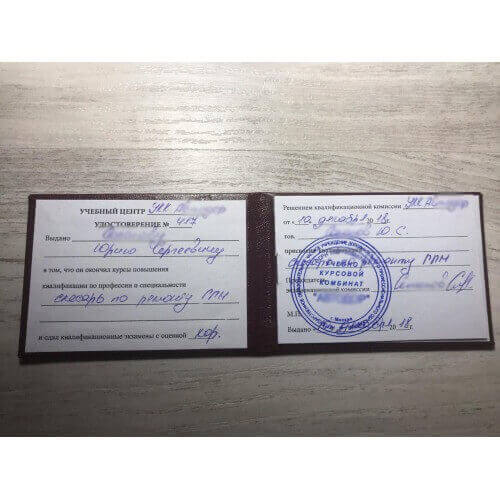 УЧЕБНЫЙ ЦЕНТР УКК
УДОСТОВЕРЕНИЕ № 417
Выдано
Юрию Сергеевичу
в том, что он окончил курсы повышения
квалификации по профессии и специальности
слесарь по ремонту ГПМ
и сдал квалификационные экзамены с оценкой хор.
Решением квалификационной комиссии УКК
от « 10 декабря 2018 г.
тов. Ю. С.
ремонту ГПМ
Председатель
экзаменационной комиссии
УЧЕБНО
КУРСОВОЙ
КОМБИНАТ
г. Москва
М.П.
Выдано 2018 г.